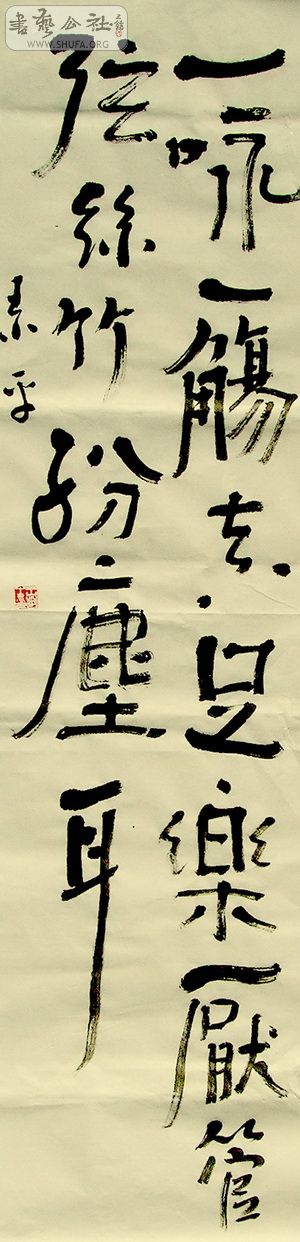 書藝公社
WWW.SHUFA.ORG
一咏一觴真足樂厭管
弦絲竹紛塵耳
素平